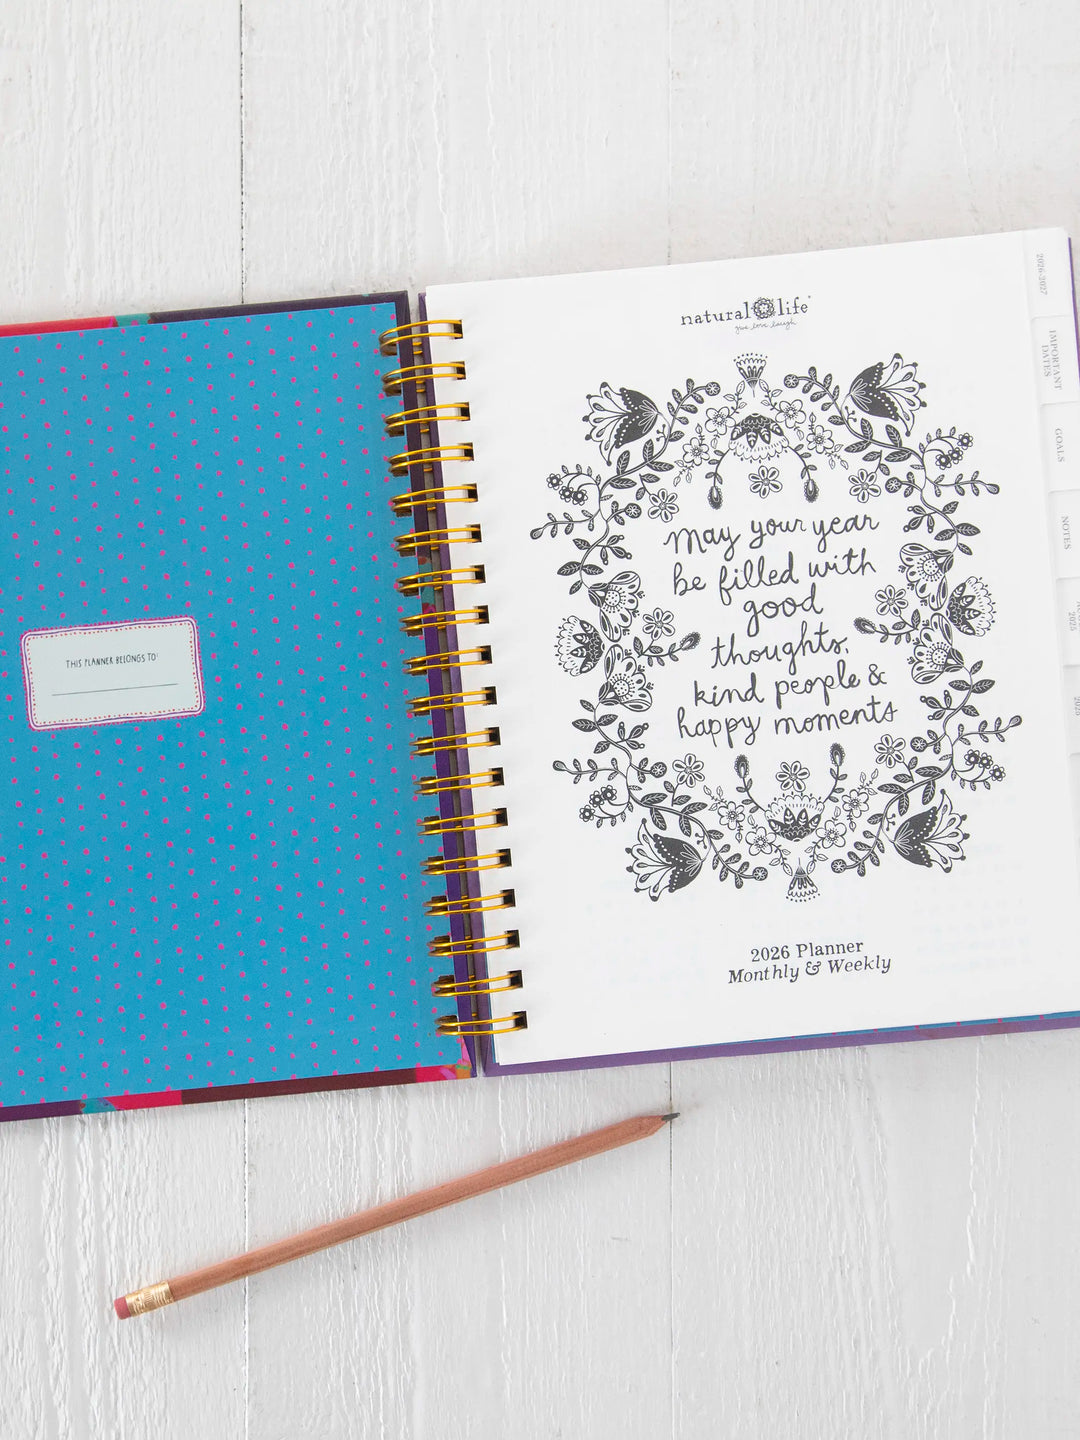 THIS PLANNER BELONGS TO:
natural life
give love laugh
May your year
be filled with
good
thoughts,
kind people &
happy moments
2026 Planner
Monthly & Weekly
2026-2027
IMPORTANT
DATES
GOALS
NOTES